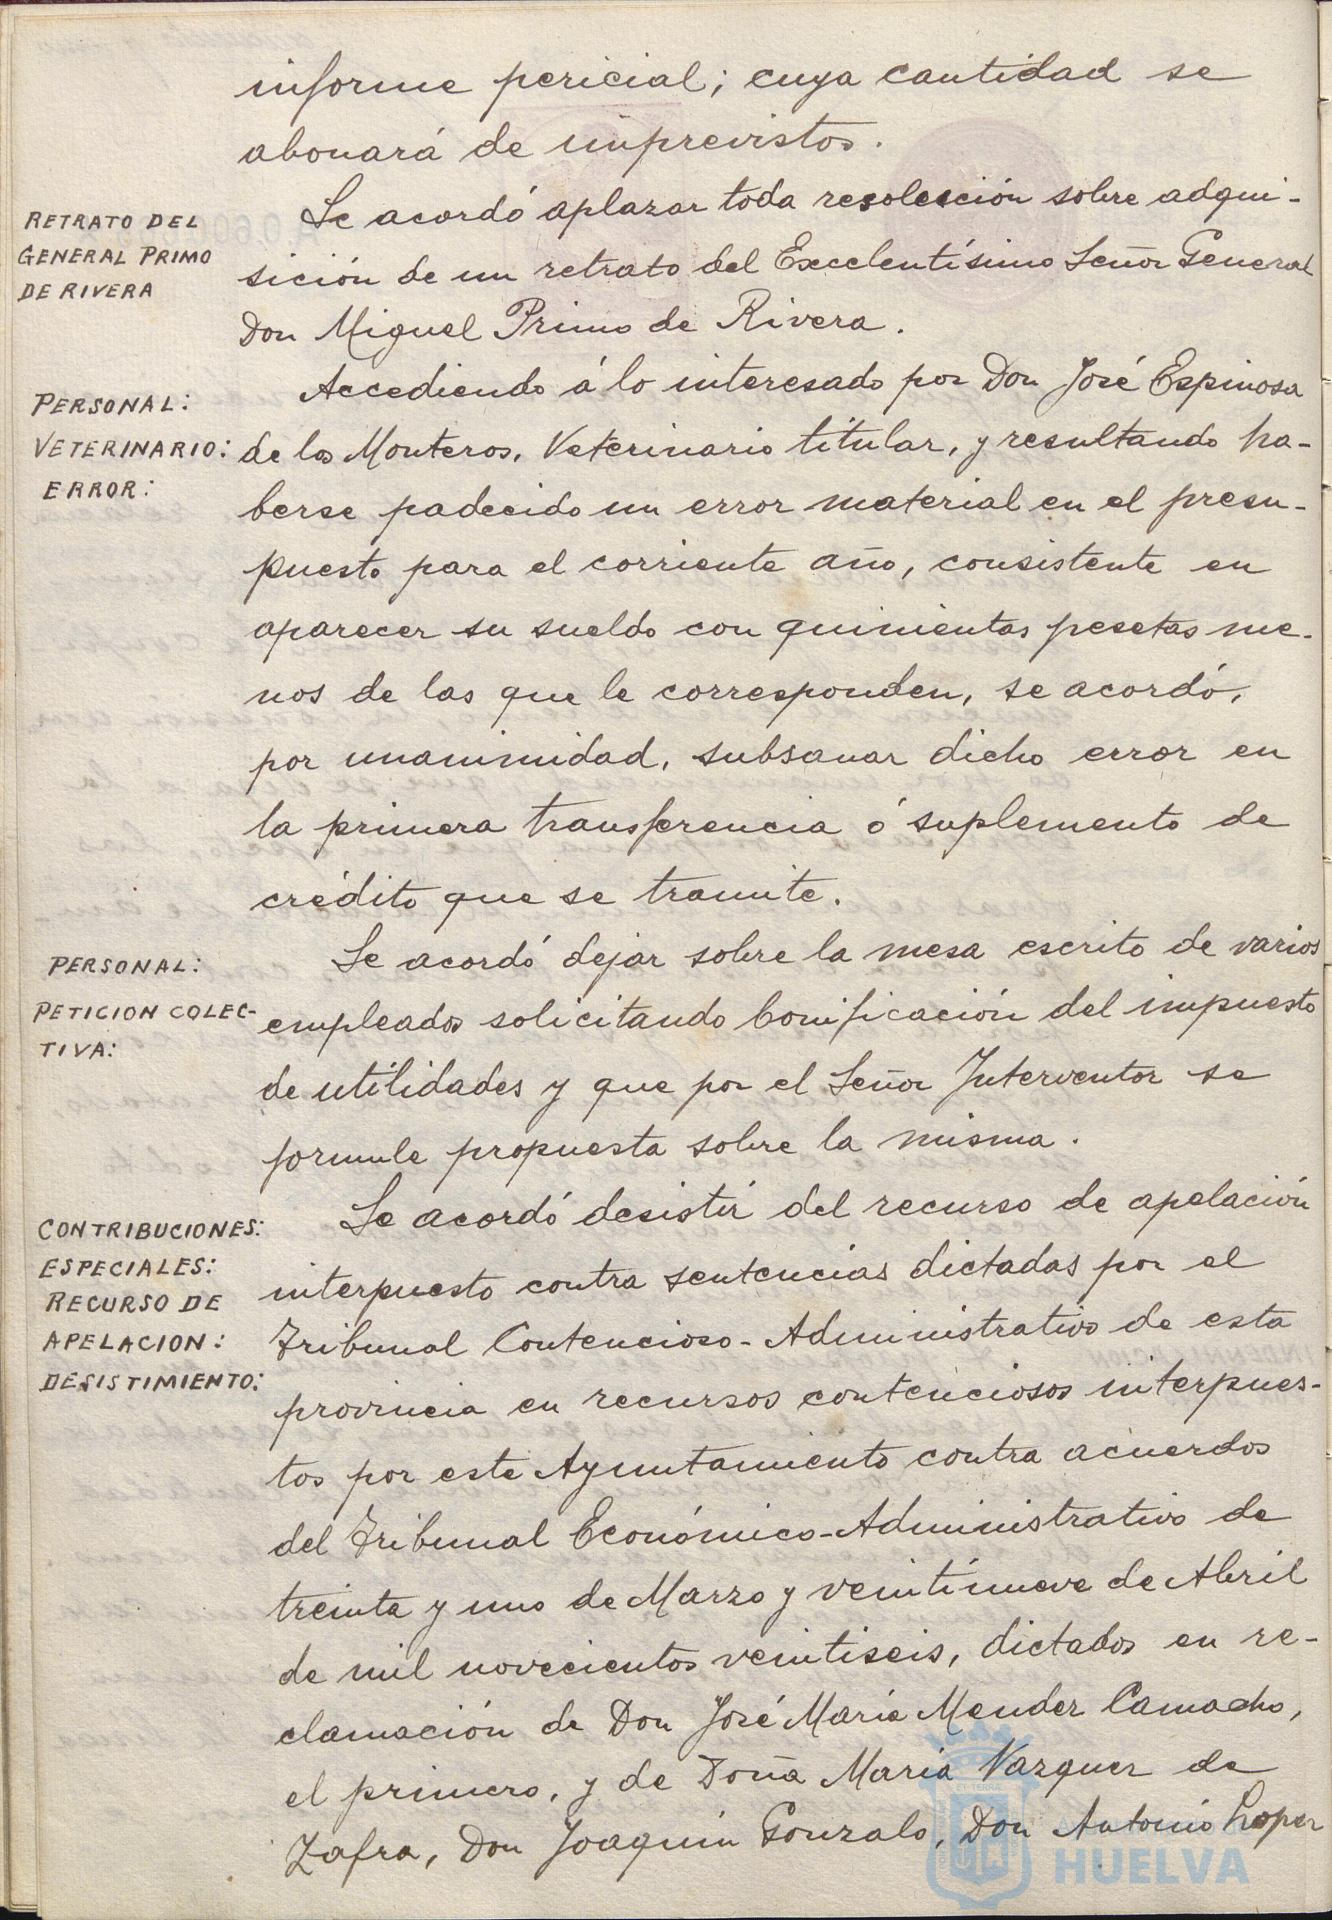 informe pericial; cuya cantidad se
abonará de imprevistos.
RETRATO DEL
GENERAL PRIMO
DE RIVERA
Se acordó aplazar toda resolución sobre adqui-
sición de un retrato del Excelentísimo Señor General
Don Miguel Primo de Rivera.
PERSONAL:
VETERINARIO:
ERROR:
Accediendo á lo interesado por Don José Espinosa
de los Monteros, Veterinario titular, y resultando ha-
berse padecido un error material en el presu-
puesto para el corriente año, consistente en
aparecer su sueldo con quinientas pesetas me-
nos de las que le corresponden, se acordó,
por unanimidad, subsanar dicho error en
la primera transferencia ó suplemento de
crédito que se tramite.
PERSONAL:
PETICION COLEC-
TIVA:
Se acordó dejar sobre la mesa escrito de varios
empleados solicitando bonificación del impuesto
de utilidades y que por el Señor Interventor se
formule propuesta sobre la misma.
CONTRIBUCIONES:
ESPECIALES:
RECURSO DE
APELACION:
DESISTIMIENTO:
Se acordó desistir del recurso de apelación
interpuesto contra sentencias dictadas por el
Tribunal Contencioso-Administrativo de esta
provincia en recursos contenciosos interpues-
tos por este Ayuntamiento contra acuerdos
del Tribunal Económico-Administrativo de
treinta y uno de Marzo y veintinueve de Abril
de mil novecientos veintiseis, dictados en re-
clamación de Don José María Mendez Camacho,
el primero, y de Doña María Vazquez de
Zafra, Don Joaquin Gonzalo, Don Antonio Lopez
HUELVA